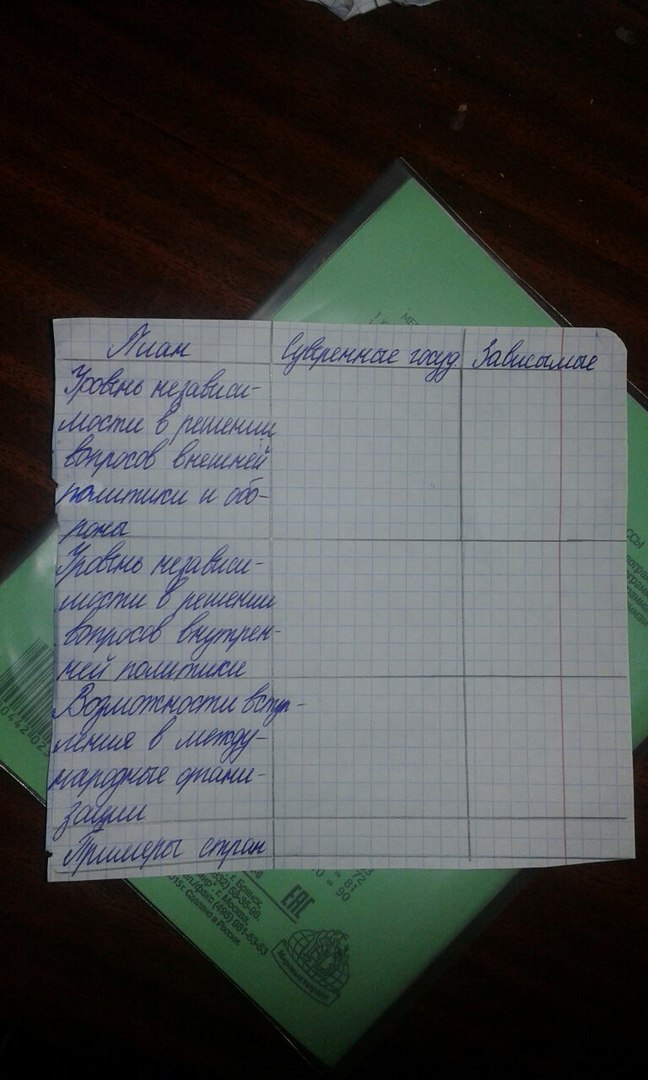 План
Суверенные госуд.
Зависимые
Уровень независи-
мости в решении
вопросов внешней
политики и обо-
роны
Уровень независи-
мости в решении
вопросов внутрен-
ней политики
Возможности вступ-
ления в между-
народные органи-
зации
Примеры стран
г. Брянск,
г. Москва,
(495) 981-63-63
2015г. Сделано в России.
EAC
= 90